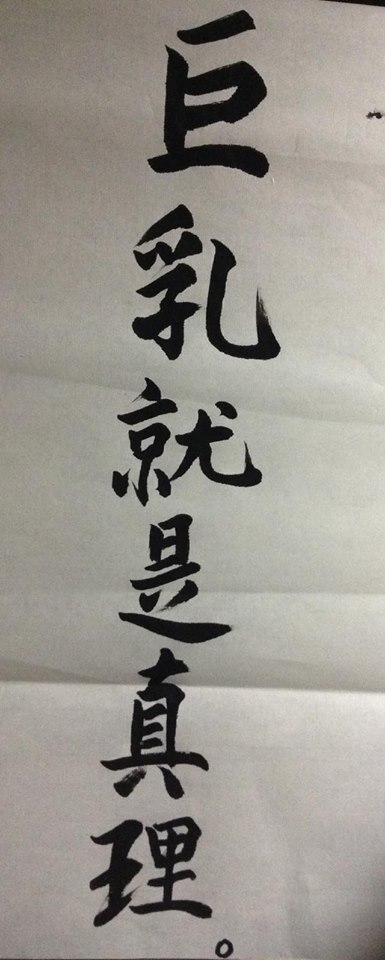 巨乳就是真理。